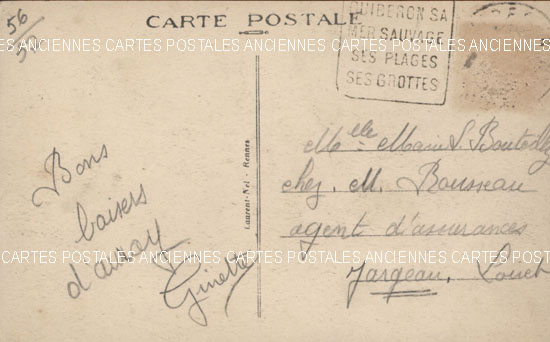 56
CARTE POSTALE
QUIBERON SA
MER SAUVAGE
SES PLAGES
SES GROTTES
ANCIENNES CARTES POSTALES ANCIENNES CARTES POSTALES ANCIENNES CARTES POSTALES
Laurent-Nel - Rennes
Bons
baisers
d'auray
Ginette
Melle Marie L.
chez M. Rousseau
agent d'assurances
Jargeau. Loiret
CARTES POSTALES ANCIENNES CARTES POSTALES ANCIENNES CARTES POSTALES ANCIENNES